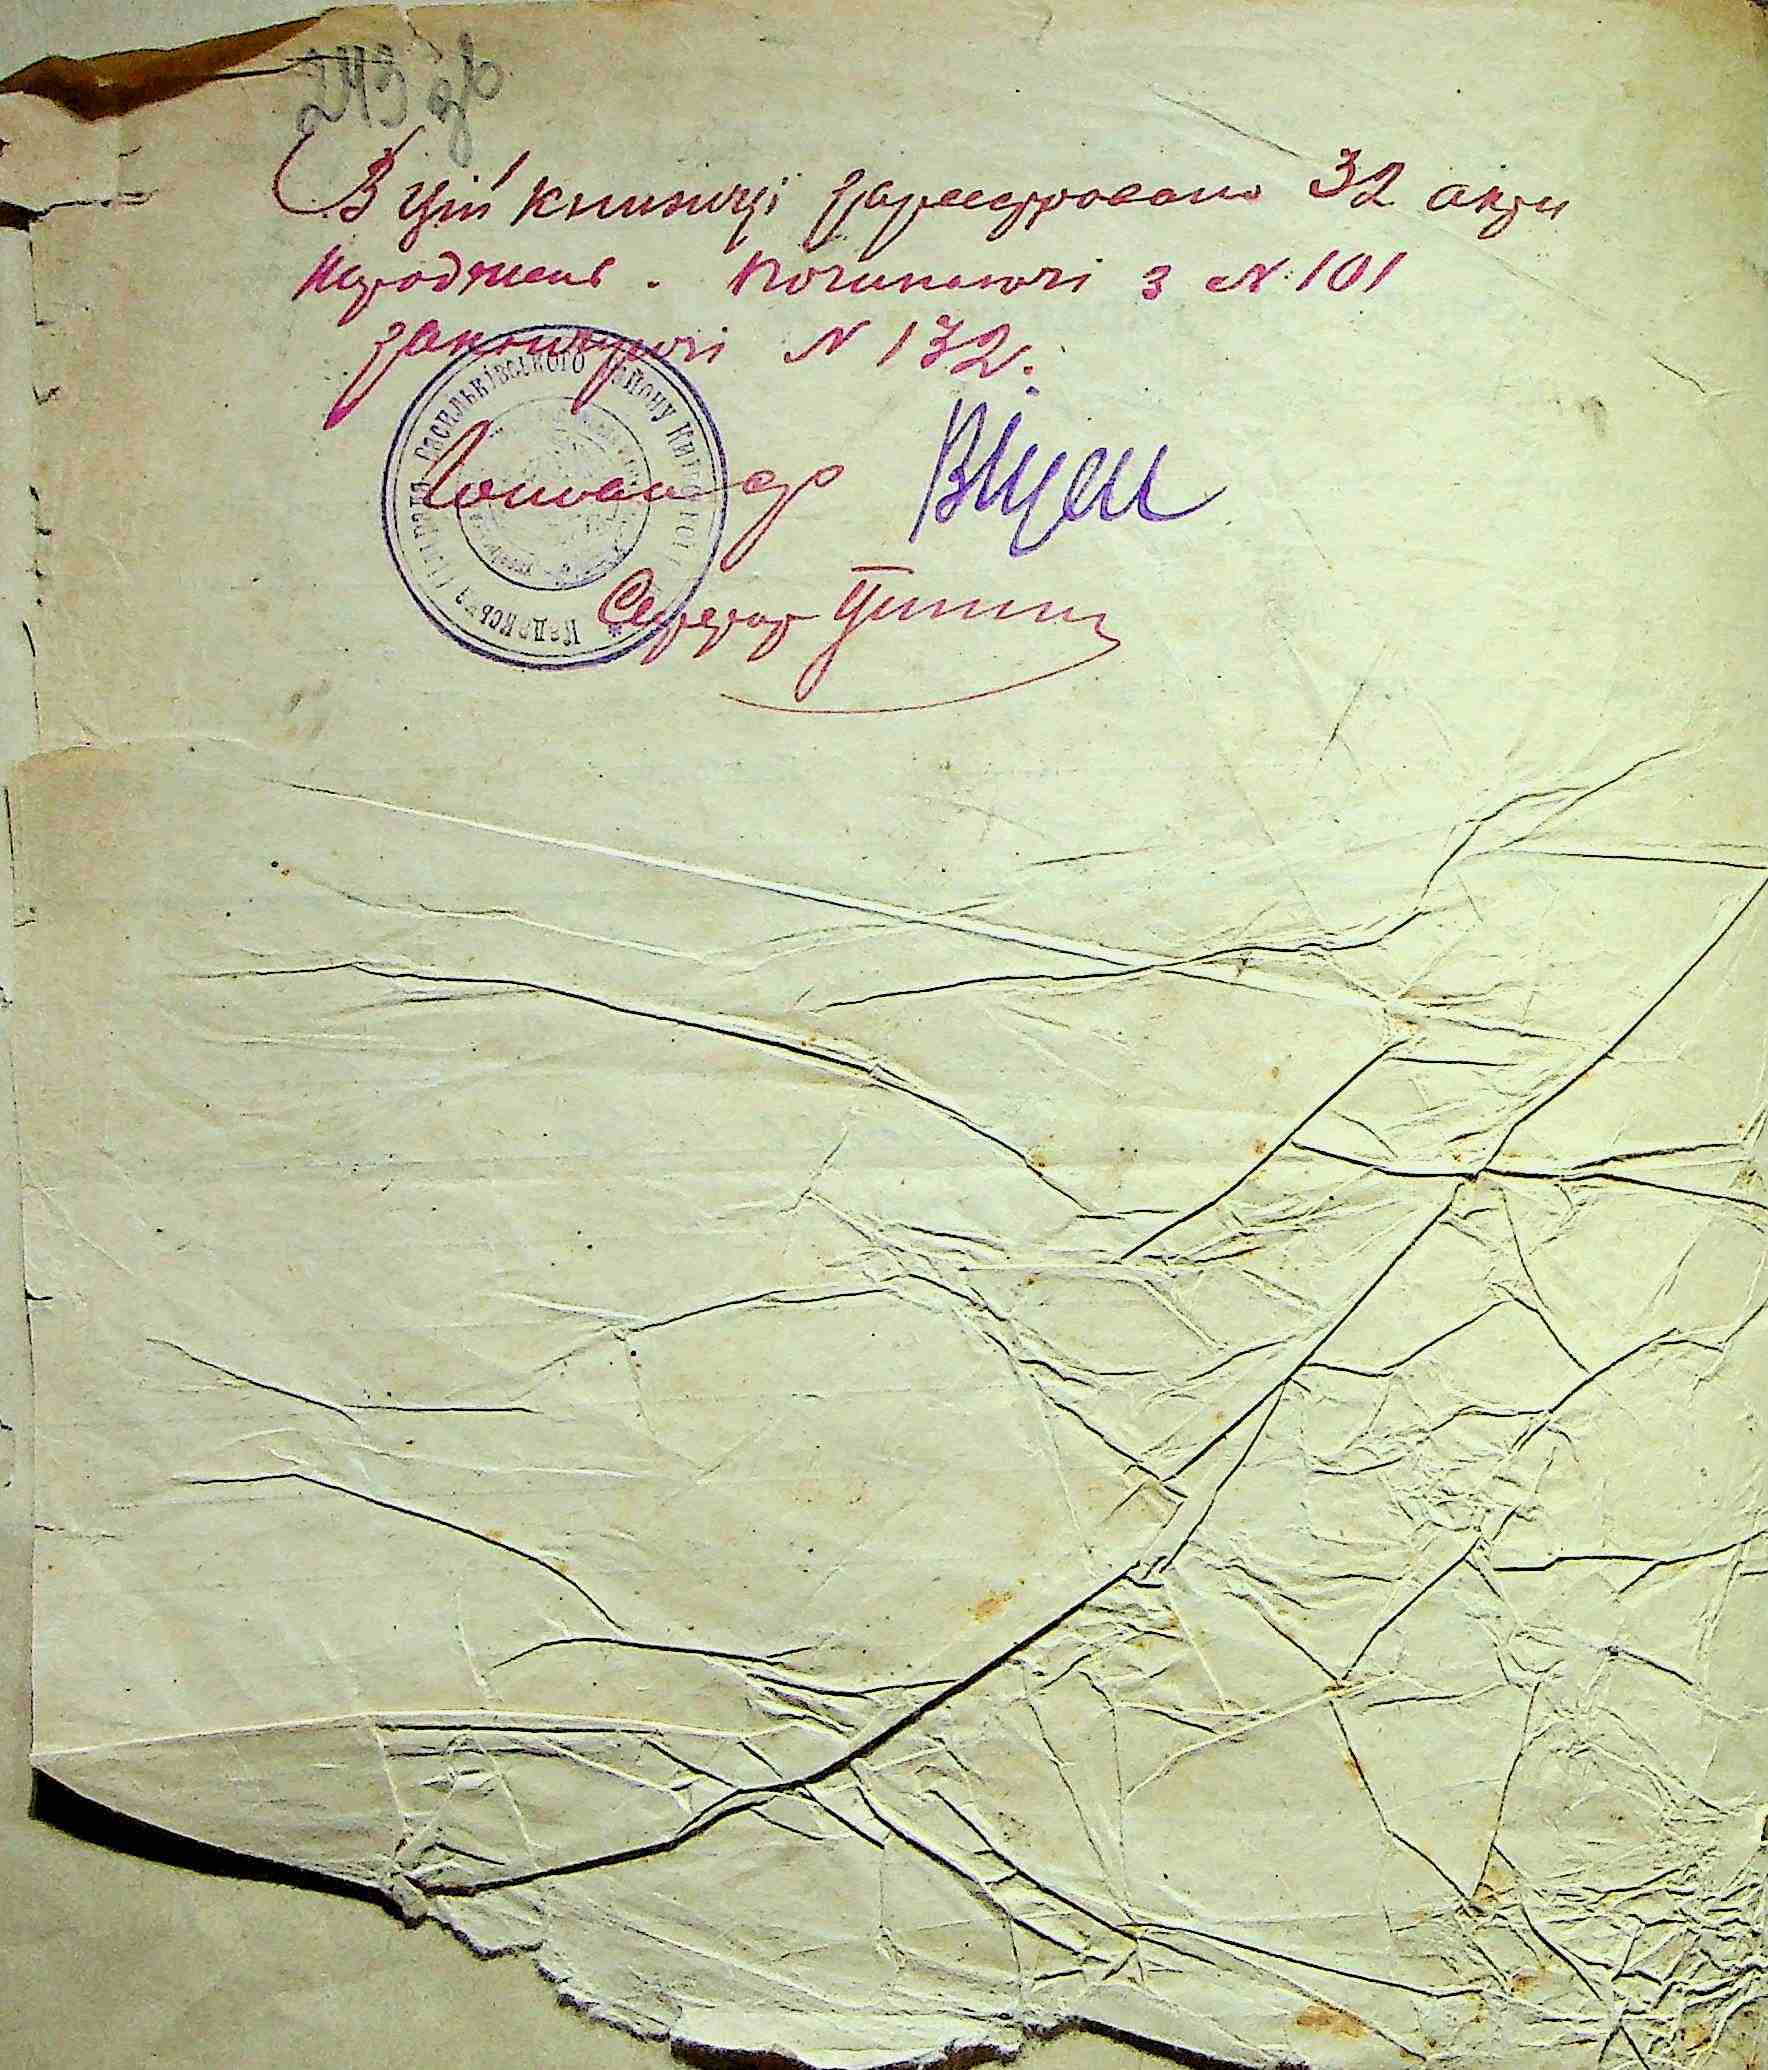 243 зв
В цій книжці зареєстровано 32 акти
Народжень. Починаючі з № 101
закінчуючі № 132.
Васильківського району Київської
Сільрада
Голова с/р
Секретар